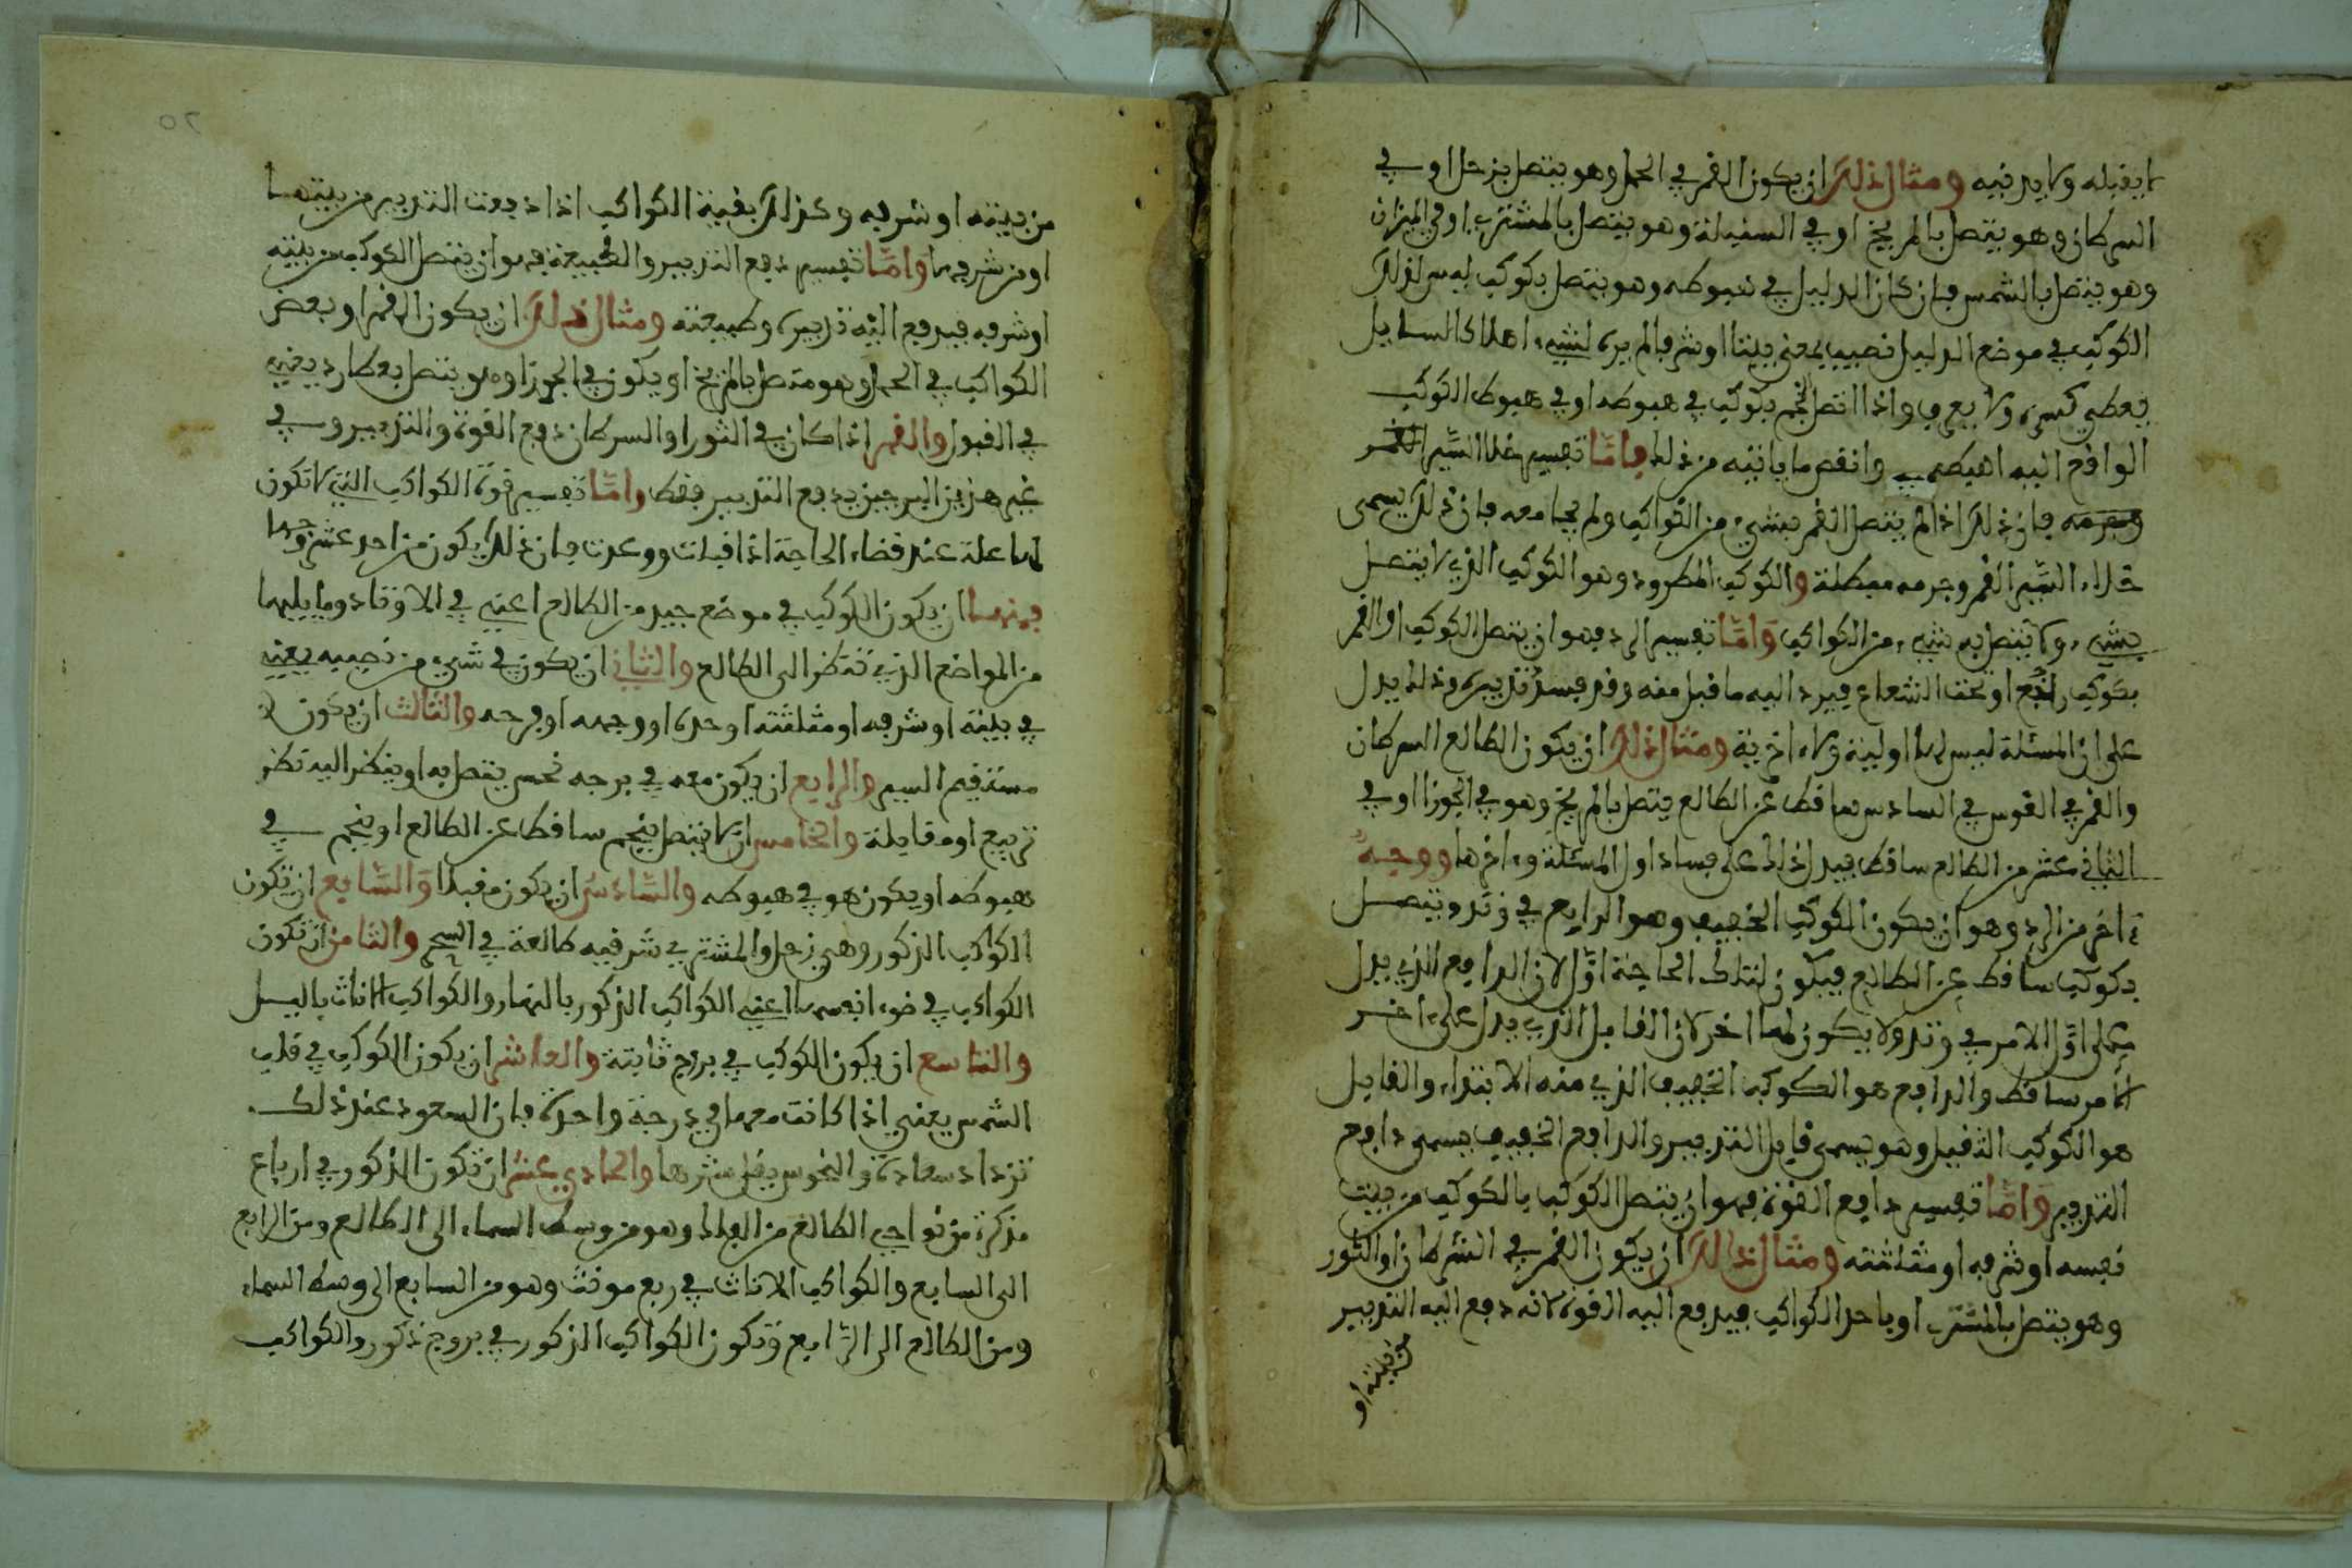 لا يقبله ولا يدنيه ومثال ذلك ان يكون القمر في الحمل وهو يتصل بزحل او في
السرطان وهو يتصل بالمريخ او في السنبلة وهو يتصل بالمشتري او في الميزان
وهو يتصل بالشمس فان كان الدليل في هبوطه وهو يتصل بكوكب ليس لذلك
الكوكب في موضع الدليل نصيب يعني بيتا او شرفا لم يرد لشيء اهلا كالسايل
يعطي كسره ولا يعرف واذا اتصل النجم بكوكب في هبوطه او في هبوط الكوكب
الواقع اليه اهبطه وانقص ما ياتيه من ذلك فاما تفسير خلا السير القمر
وجرمه فان ذلك اذا لم يتصل القمر بشيء من الكواكب ولم يجامعه فان ذلك يسمى
خلاء السير القمر وجرمه معطلة والكوكب المطرود وهو الكوكب الذي لا يتصل
بشيء ولا يتصل به شيء من الكواكب واما تفسير الرد فهو ان يتصل الكوكب او القمر
بكوكب راجع او تحت الشعاع فيرد اليه ما قبل منه وقد فسد تدبيره وذلك يدل
على ان المسئلة ليس لها اولية ولا اخرية ومثال ذلك ان يكون الطالع السرطان
والقمر في القوس في السادس ساقط عن الطالع يتصل بالمريخ وهو في الجوزا او في
الثاني عشر من الطالع ساقط فيدل ذلك على فساد اول المسئلة واخرها ووجه
اخر من الرد وهو ان يكون الكوكب الخفيف وهو الرابع في وتد ويتصل
بكوكب ساقط عن الطالع فيكون لتلك الحاجة اول لان الدافع الذي يدل
على اول الامر في وتد ولا يكون لها اخر لان القابل الذي يدل على اخر
الامر ساقط والدافع هو الكوكب الخفيف الذي منه الابتداء والقابل
هو الكوكب الثقيل وهو يسمى قابل التدبير والدافع الخفيف يسمى دافع
التدبير واما تفسير دافع القوة فهو ان يتصل الكوكب بالكوكب من بيت
نفسه او شرفه او مثلثته ومثال ذلك ان يكون القمر في السرطان او الثور
وهو يتصل بالمشتري او باحد الكواكب فيدفع اليه القوة لانه دفع اليه التدبير
من بيته او
من بيته او شرفه وكذلك بقية الكواكب اذا دفعت التدبير من بيتها
او من شرفها واما تفسير دفع التدبير والطبيعة فهو ان يتصل الكوكب من بيته
او شرفه فيدفع اليه تدبيره وطبيعته ومثال ذلك ان يكون القمر او بعض
الكواكب في الحمل وهو متصل بالمريخ او يكون في الجوزا وهو يتصل بعطارد يعني
في القبول والقمر اذا كان في الثور او السرطان دفع القوة والتدبير وفي
غير هذين البرجين يدفع التدبير فقط واما تفسير قوة الكواكب التي لا تكون
لها علة عند قضاء الحاجة اذا قبلت ووعدت فان ذلك يكون من احد عشر وجها
فمنها ان يكون الكوكب في موضع جيد من الطالع اعني في الاوتاد وما يليها
من المواضع الذي تنظر الى الطالع والثاني ان يكون في شيء من نصيبه يعني
في بيته او شرفه او مثلثته او حده او وجهه او فرحه والثالث ان يكون
مستقيم السير والرابع ان يكون معه في برجه نحس يتصل به او ينظر اليه نظر
تربيع او مقابلة والخامس ان لا يتصل بنجم ساقط عن الطالع او بنجم في
هبوطه او يكون هو في هبوطه والسادس ان يكون مقبلا والسابع ان تكون
الكواكب الذكور وهي زحل والمشتري شرقيه طالعة في السحر والثامن ان تكون
الكواكب في ضوء انفسها اعني الكواكب الذكور بالنهار والكواكب الاناث باليل
والتاسع ان يكون الكوكب في بروج ثابتة والعاشر ان يكون الكوكب في قلب
الشمس يعني اذا كانت معها في درجة واحدة فان السعود عند ذلك
تزداد سعادة والنحوس يقل شرها والحادي عشر ان تكون الذكور في ارباع
مذكرة من نواحي الطالع من الفلك وهو من وسط السماء الى الطالع ومن الرابع
الى السابع والكواكب الاناث في ربع مونث وهو من السابع الى وسط السماء
ومن الطالع الى الرابع وتكون الكواكب الذكور في بروج ذكور والكواكب